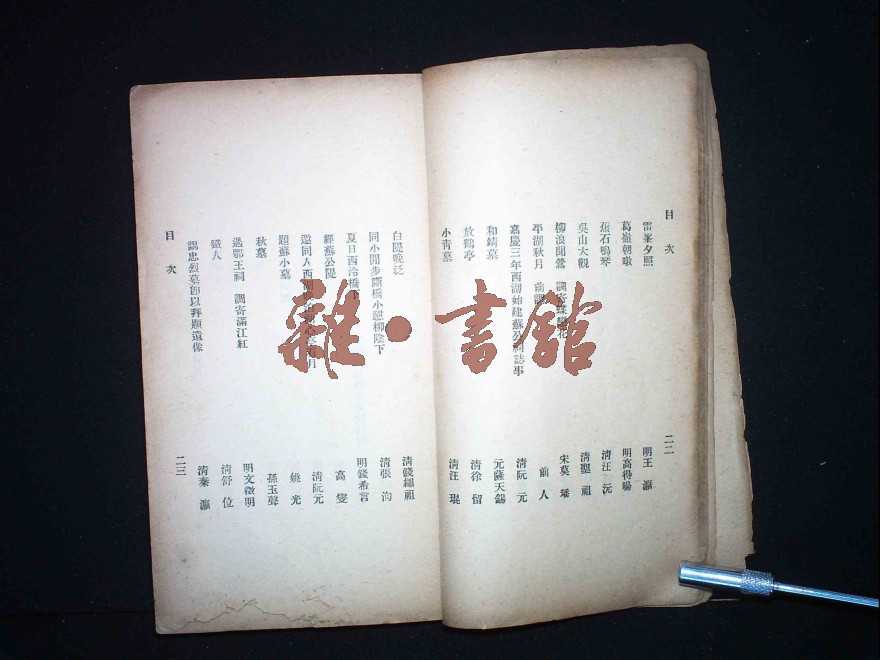 目次
二二
雷峯夕照 明王瀛
葛嶺朝暾 明高得暘
蕉石鳴琴 清汪沅
吳山大觀 清聖祖
柳浪聞鶯 調寄蝶戀花 宋莫瑤
平湖秋月 前人
嘉慶三年西湖始建蘇公祠誌事 清阮元
和靖墓 元薩天錫
放鶴亭 清徐留
小青墓 清汪琨
白隄晚泛 清錢繩祖
同小閒步斷橋小憩柳陰下 清張洵
夏日西泠橋 明錢希言
經蘇公隄 高燮
邀同人西湖 月 清阮元
題蘇小墓 姚光
秋墓 孫玉聲
過鄂王祠 調寄滿江紅 明文徵明
鐵人 清舒位
謁忠烈墓卽以拜題遺像 清秦瀛
目次
二三
雜·書館